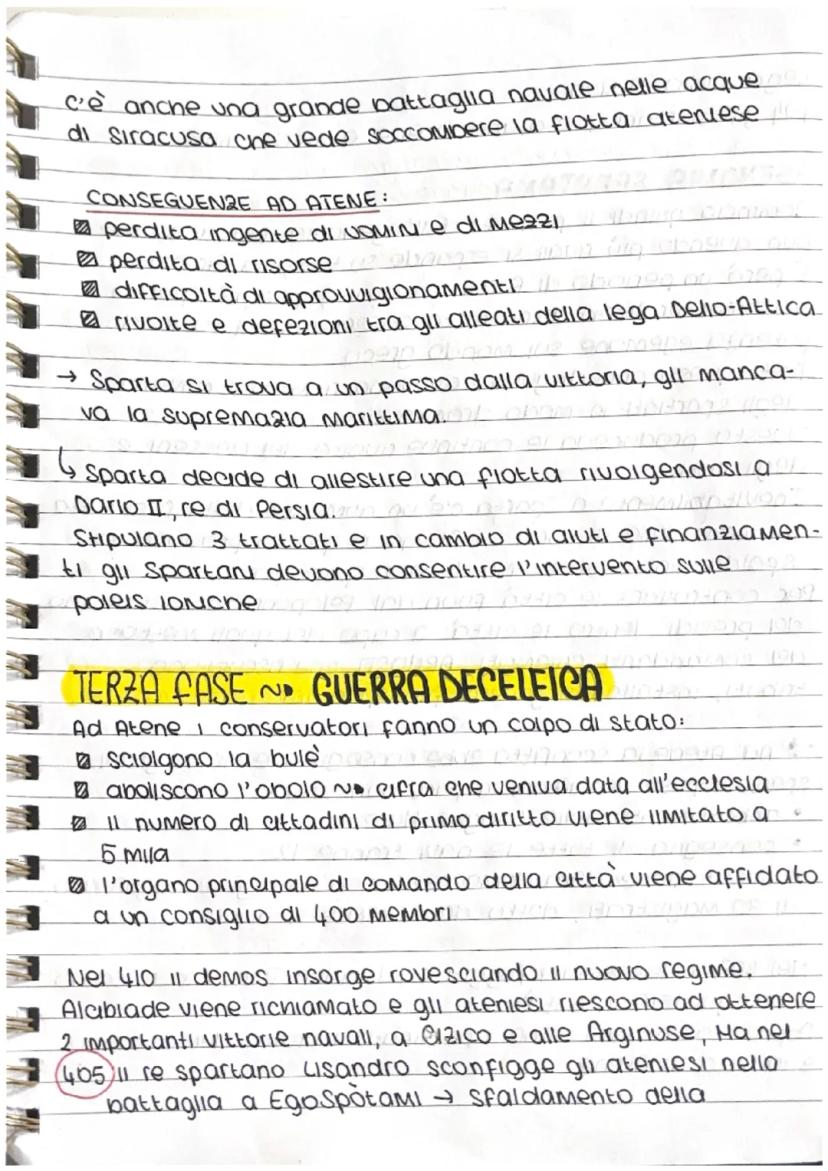 c'è anche una grande battaglia navale nelle acque
di Siracusa che vede soccombere la flotta ateniese
CONSEGUENZE AD ATENE:
perdita ingente di uomini e di mezzi
perdita di risorse
difficoltà di approvvigionamenti
rivolte e defezioni tra gli alleati della lega Delio-Attica
→ Sparta si trova a un passo dalla vittoria, gli manca-
va la supremazia marittima.
↳ Sparta decide di allestire una flotta rivolgendosi a
Dario II, re di Persia.
Stipulano 3 trattati e in cambio di aiuti e finanziamen-
ti gli Spartani devono consentire l'intervento sulle
poleis ioniche
TERZA FASE ~> GUERRA DECELEICA
Ad Atene i conservatori fanno un colpo di stato:
sciolgono la bulè
aboliscono l'obolo ~> cifra che veniva data all'ecclesia
il numero di cittadini di primo diritto viene limitato a
5 mila
l'organo principale di comando della città viene affidato
a un consiglio di 400 membri
Nel 410 il demos insorge rovesciando il nuovo regime.
Alcibiade viene richiamato e gli ateniesi riescono ad ottenere
2 importanti vittorie navali, a Cizico e alle Arginuse, Ma nel
405 il re spartano Lisandro sconfigge gli ateniesi nella
battaglia a EgoSpòtami → sfaldamento della